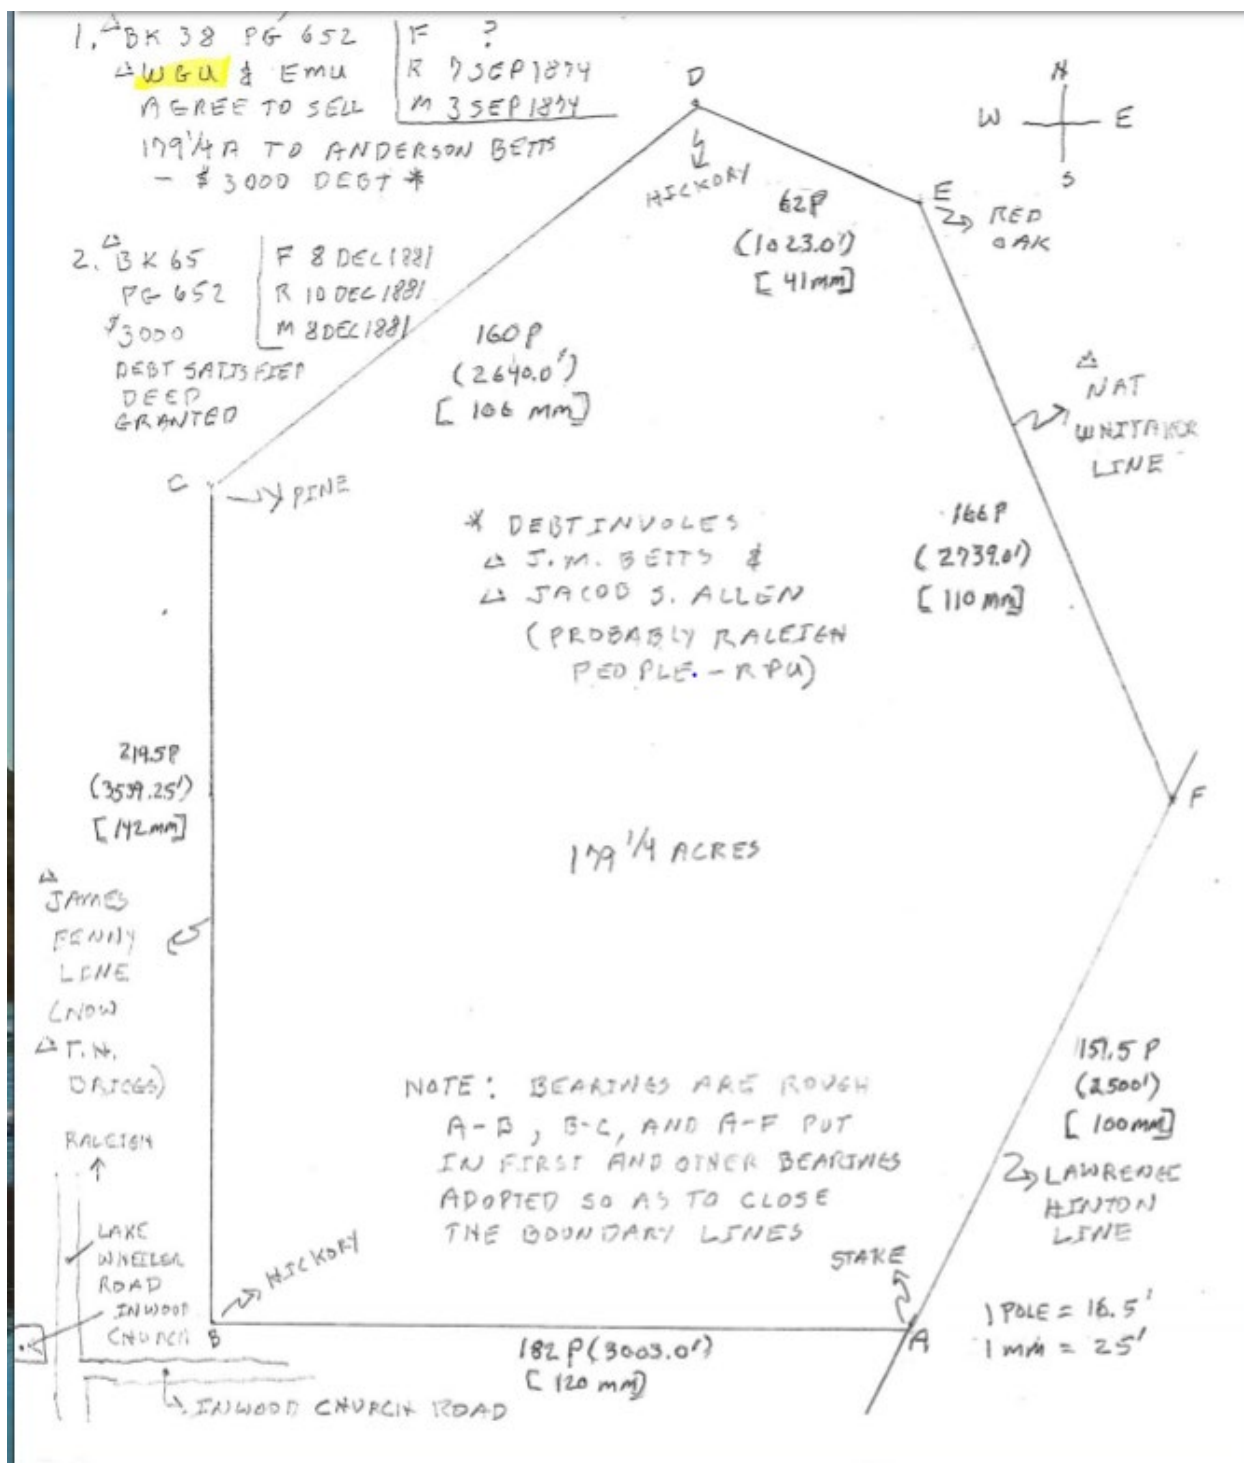 1. △BK 38 PG 652
△WGU & EMU
AGREE TO SELL
179 1/4 A TO ANDERSON BETTS
- $3000 DEBT *
F ?
R 7 SEP 1874
M 3 SEP 1874
D
HICKORY
N
W E
S
E
RED
OAK
62P
(1023.0')
[41mm]
2. △BK 65
PG 652
$3000
DEBT SATISFIED
DEED
GRANTED
F 8 DEC 1881
R 10 DEC 1881
M 8 DEC 1881
160P
(2640.0')
[106 mm]
△
NAT
WHITAKER
LINE
C
PINE
* DEBT INVOLES
△ J.M. BETTS &
△ JACOB S. ALLEN
(PROBABLY RALEIGH
PEOPLE. - RPU)
166P
(2739.0')
[110 mm]
F
219.5P
(3539.25')
[142mm]
179 1/4 ACRES
△
JAMES
PENNY
LINE
(NOW
△ T.N.
BRIGGS)
NOTE: BEARINGS ARE ROUGH
A-B, B-C, AND A-F PUT
IN FIRST AND OTHER BEARINGS
ADOPTED SO AS TO CLOSE
THE BOUNDARY LINES
151.5 P
(2500')
[100mm]
LAWRENCE
HINTON
LINE
RALEIGH
LAKE
WHEELER
ROAD
INWOOD
CHURCH
HICKORY
B
STAKE
A
1 POLE = 16.5'
1 mm = 25'
182 P (3003.0')
[120 mm]
INWOOD CHURCH ROAD